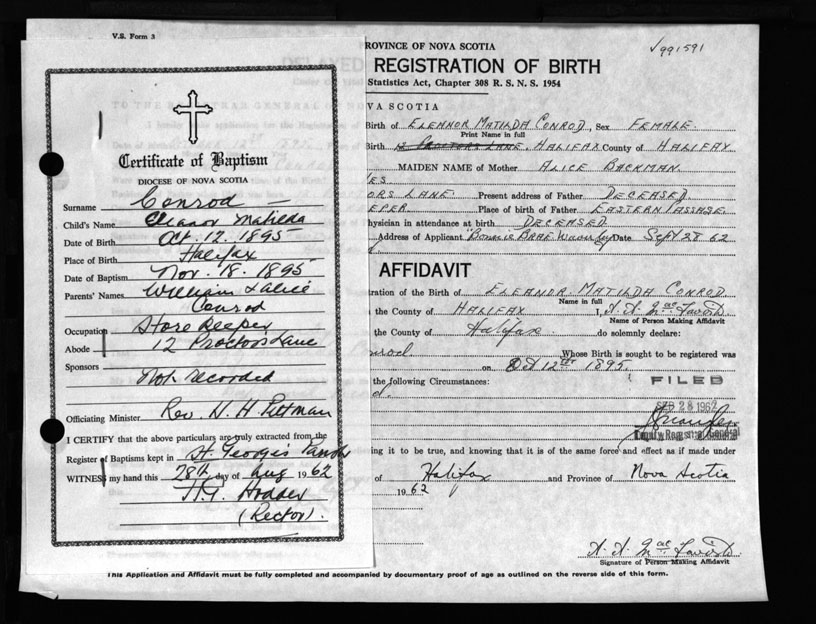 V.S. Form 3
Certificate of Baptism
DIOCESE OF NOVA SCOTIA
Surname Conrod
Child's Name Eleanor Matilda
Date of Birth Oct. 12. 1895
Place of Birth Halifax
Date of Baptism Nov. 18. 1895
Parents' Names William & Alice
Conrod
Occupation Store Keeper
Abode 12 Proctors Lane
Sponsors
Not recorded
Officiating Minister Rev. H. H. Pittman
I CERTIFY that the above particulars are truly extracted from the
Register of Baptisms kept in St. George's Parish
WITNESS my hand this 28th day of Aug 1962
Hodder
(Rector).
PROVINCE OF NOVA SCOTIA
991591
REGISTRATION OF BIRTH
Statistics Act, Chapter 308 R. S. N. S. 1954
VA SCOTIA
Birth of ELEANOR MATILDA CONROD, Sex FEMALE
Print Name in full
Birth 12 PROCTORS LANE, HALIFAX County of HALIFAX
MAIDEN NAME of Mother ALICE BACKMAN
ES
ORS LANE Present address of Father DECEASED
EEPER Place of birth of Father EASTERN PASSAGE
hysician in attendance at birth DECEASED
Address of Applicant "BONNIE BRAE" Date SEPT 28 62
AFFIDAVIT
tration of the Birth of ELEANOR MATILDA CONROD
Name in full
the County of HALIFAX I,
Name of Person Making Affidavit
the County of Halifax do solemnly declare:
onrod Whose Birth is sought to be registered was
on Oct 12th 1895.
the following Circumstances:
d.
FILED
SEP 28 1962
Deputy Registrar General
ing it to be true, and knowing that it is of the same force and effect as if made under
of Halifax and Province of Nova Scotia
1962
Signature of Person Making Affidavit
This Application and Affidavit must be fully completed and accompanied by documentary proof of age as outlined on the reverse side of this form.